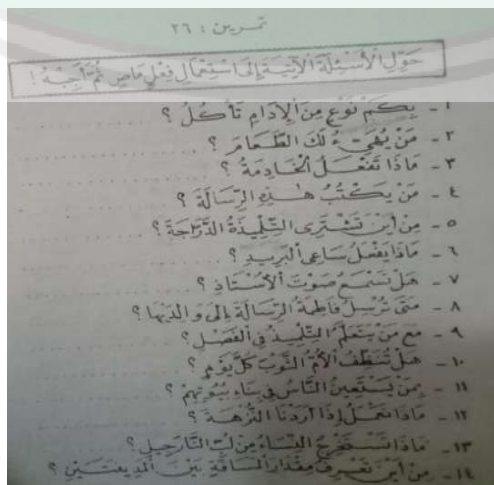 تمرين : ٢٦
حَوِّلِ الْأَسْئِلَةَ الْآتِيَةَ إِلَى اسْتِعْمَالِ فِعْلٍ مَاضٍ ثُمَّ أَجِبْهُ !
١ - بِكَمْ نَوْعٍ مِنَ الْإِدَامِ تَأْكُلُ ؟
٢ - مَنْ يُهَيِّءُ لَكَ الطَّعَامَ ؟
٣ - مَاذَا تَفْعَلُ الْخَادِمَةُ ؟
٤ - مَنْ يَكْتُبُ هٰذِهِ الرِّسَالَةَ ؟
٥ - مِنْ أَيْنَ تَشْتَرِى التِّلْمِيذَةُ الدَّرَّاجَةَ ؟
٦ - مَاذَا يَفْعَلُ سَاعِى الْبَرِيدِ ؟
٧ - هَلْ تَسْمَعُ صَوْتَ الْأُسْتَاذِ ؟
٨ - مَتَى تُرْسِلُ فَاطِمَةُ الرِّسَالَةَ إِلَى وَالِدَيْهَا ؟
٩ - مَعَ مَنْ يَتَعَلَّمُ التِّلْمِيذُ فِى الْفَصْلِ ؟
١٠ - هَلْ تُنَظِّفُ الْأُمُّ الثَّوْبَ كُلَّ يَوْمٍ ؟
١١ - بِمَنْ يَسْتَعِينُ النَّاسُ فِى بِنَاءِ بُيُوتِهِمْ ؟
١٢ - مَاذَا نَعْمَلُ إِذَا أَرَدْنَا النُّزْهَةَ ؟
١٣ - مَاذَا تَسْتَخْرِجُ النِّسَاءُ مِنَ النَّارَجِيلِ ؟
١٤ - مِنْ أَيْنَ تَعْرِفُ مِقْدَارَ الْمَسَافَةِ بَيْنَ الْمَدِينَتَيْنِ ؟